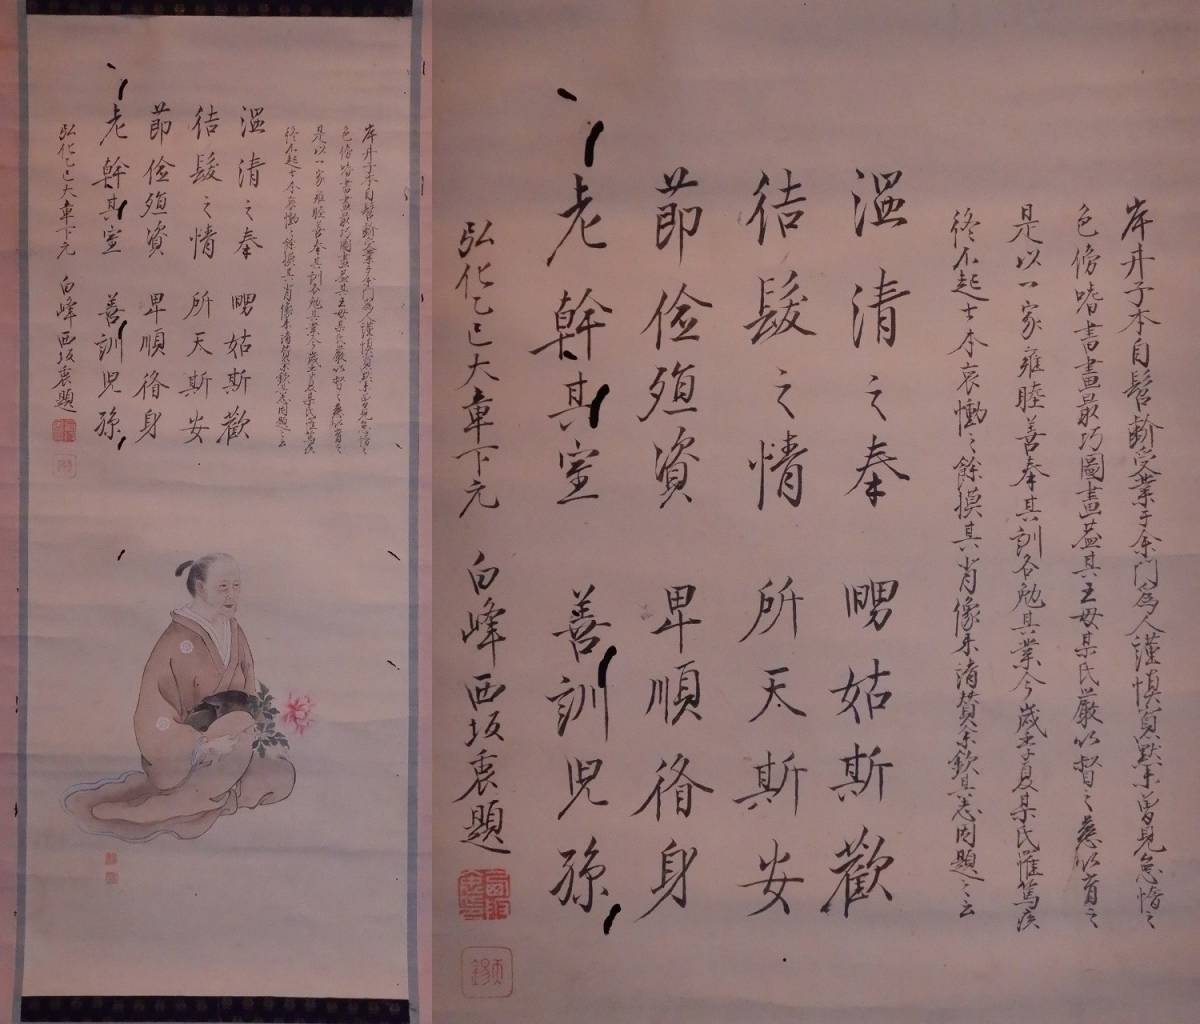 岸井子本自髫齔受業于余門為人謹慎寡黙未曽見怠惰之
色傍嗜書畫最巧圖畫蓋其王母某氏嚴以督之慈以育之
是以一家雍睦善奉其訓各勉其業今歳季夏某氏罹篤疾
終不起士本哀慟之餘摸其肖像来請賛余欽其志因題之云
温凊之奉 舅姑斯歡
結髪之情 所天斯安
節儉殖資 卑順脩身
老幹其室 善訓児孫
弘化乙巳大章下元 白峰西坂衷題